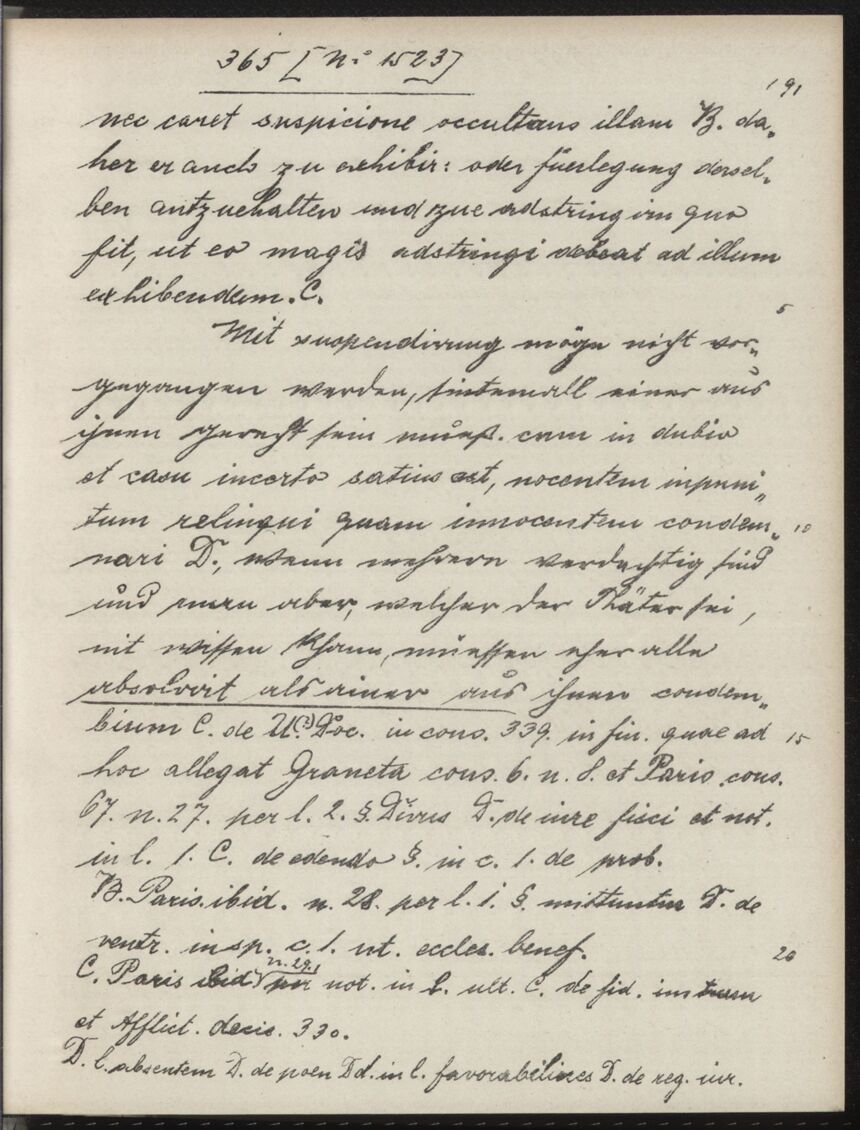 365 [Nº 1523]
191
nec caret suspicione occultans illam B. da„
her er auch zu exhibir: oder fuerlegung dersel„
ben antzuehalten und zue adstringirn quo
fit, ut eo magis adstringi debeat ad illum
exhibendum. C.
5
Mit suspendirung möge nicht vor„
gegangen werden, sintemall einer aus
ihnen gerecht sein mueß. cum in dubio
et casu incerto satius est, nocentem inpuni„
tum relinqui quam innocentem condem„ 10
nari D., wenn mehrern verdachtig sind
und man aber, welcher der Thäter sei,
nit wissen khann, müessen eher alle
absolvirt als ainer aus ihnen condem„
bium C. de Doc. in cons. 339. in fin. quae ad 15
hoc allegat Graneta cons. 6. n. 8. et Paris. cons.
67. n. 27. per l. 2. §. Divus D. de iure fisci et not.
in l. 1. C. de edendo §. in c. 1. de prob.
B. Paris. ibid. n. 28. per l. 1. §. mittuntur D. de
ventr. insp. c. 1. ut. eccles. benef. 20
C. Paris ibid n. 29. per not. in l. ult. C. de fid. instrum
et Afflict. decis. 330.
D. l. absentem D. de poen Dd. in l. favorabiliores D. de reg. iur.